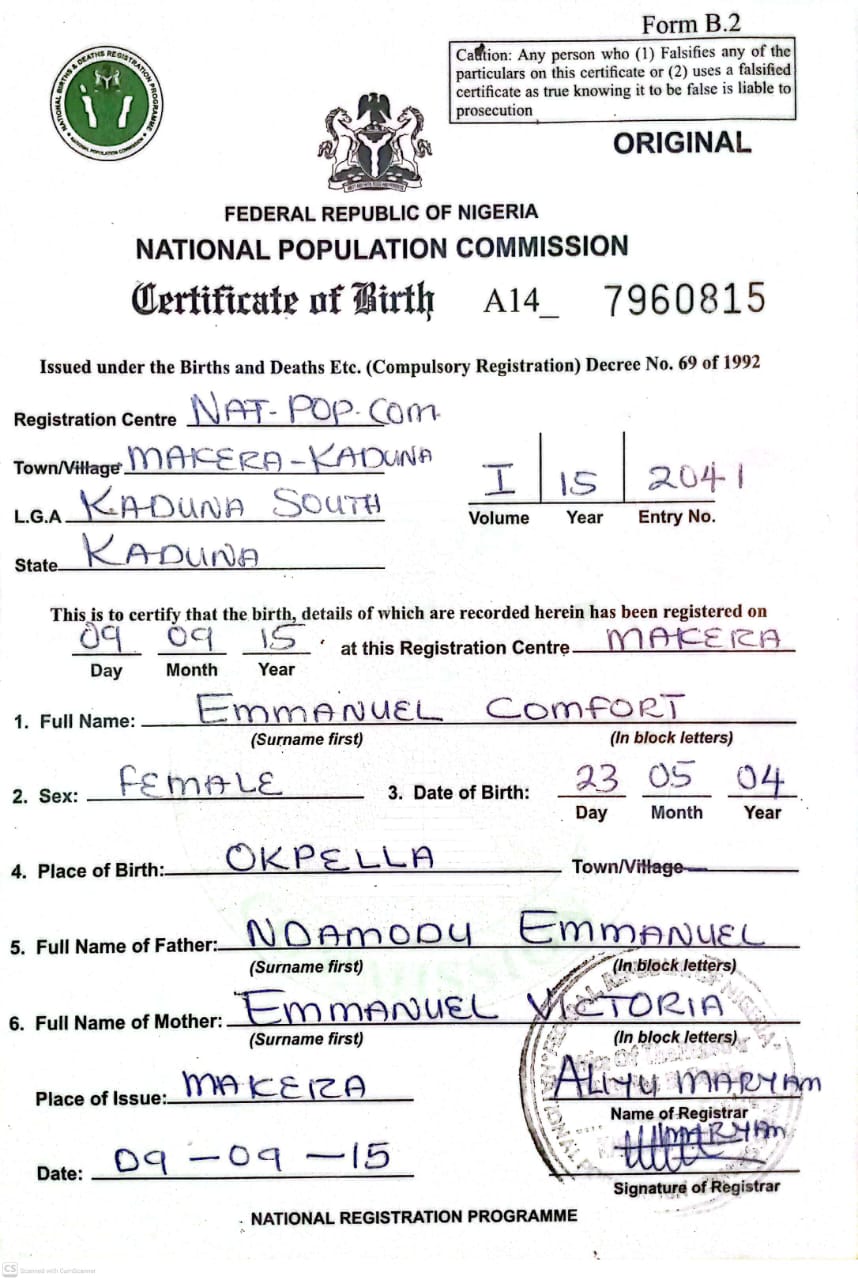 Form B.2
Caution: Any person who (1) Falsifies any of the
particulars on this certificate or (2) uses a falsified
certificate as true knowing it to be false is liable to
prosecution
NATIONAL BIRTHS & DEATHS REGISTRATION PROGRAMME
NATIONAL POPULATION COMMISSION
ORIGINAL
FEDERAL REPUBLIC OF NIGERIA
NATIONAL POPULATION COMMISSION
Certificate of Birth A14_ 7960815
Issued under the Births and Deaths Etc. (Compulsory Registration) Decree No. 69 of 1992
Registration Centre NAT-POP.COM
Town/Village MAKERA-KADUNA
L.G.A KADUNA SOUTH
State KADUNA
I 15 2041
Volume Year Entry No.
This is to certify that the birth, details of which are recorded herein has been registered on
09 09 15 at this Registration Centre MAKERA
Day Month Year
1. Full Name: EMMANUEL COMFORT
(Surname first) (In block letters)
2. Sex: FEMALE 3. Date of Birth: 23 05 04
Day Month Year
4. Place of Birth: OKPELLA Town/Village
5. Full Name of Father: NDAMODU EMMANUEL
(Surname first) (In block letters)
6. Full Name of Mother: EMMANUEL VICTORIA
(Surname first) (In block letters)
Place of Issue: MAKERA
ALIYU MARYAM
Name of Registrar
MARYAM
Date: 09-09-15
Signature of Registrar
NATIONAL REGISTRATION PROGRAMME
CS Scanned with CamScanner